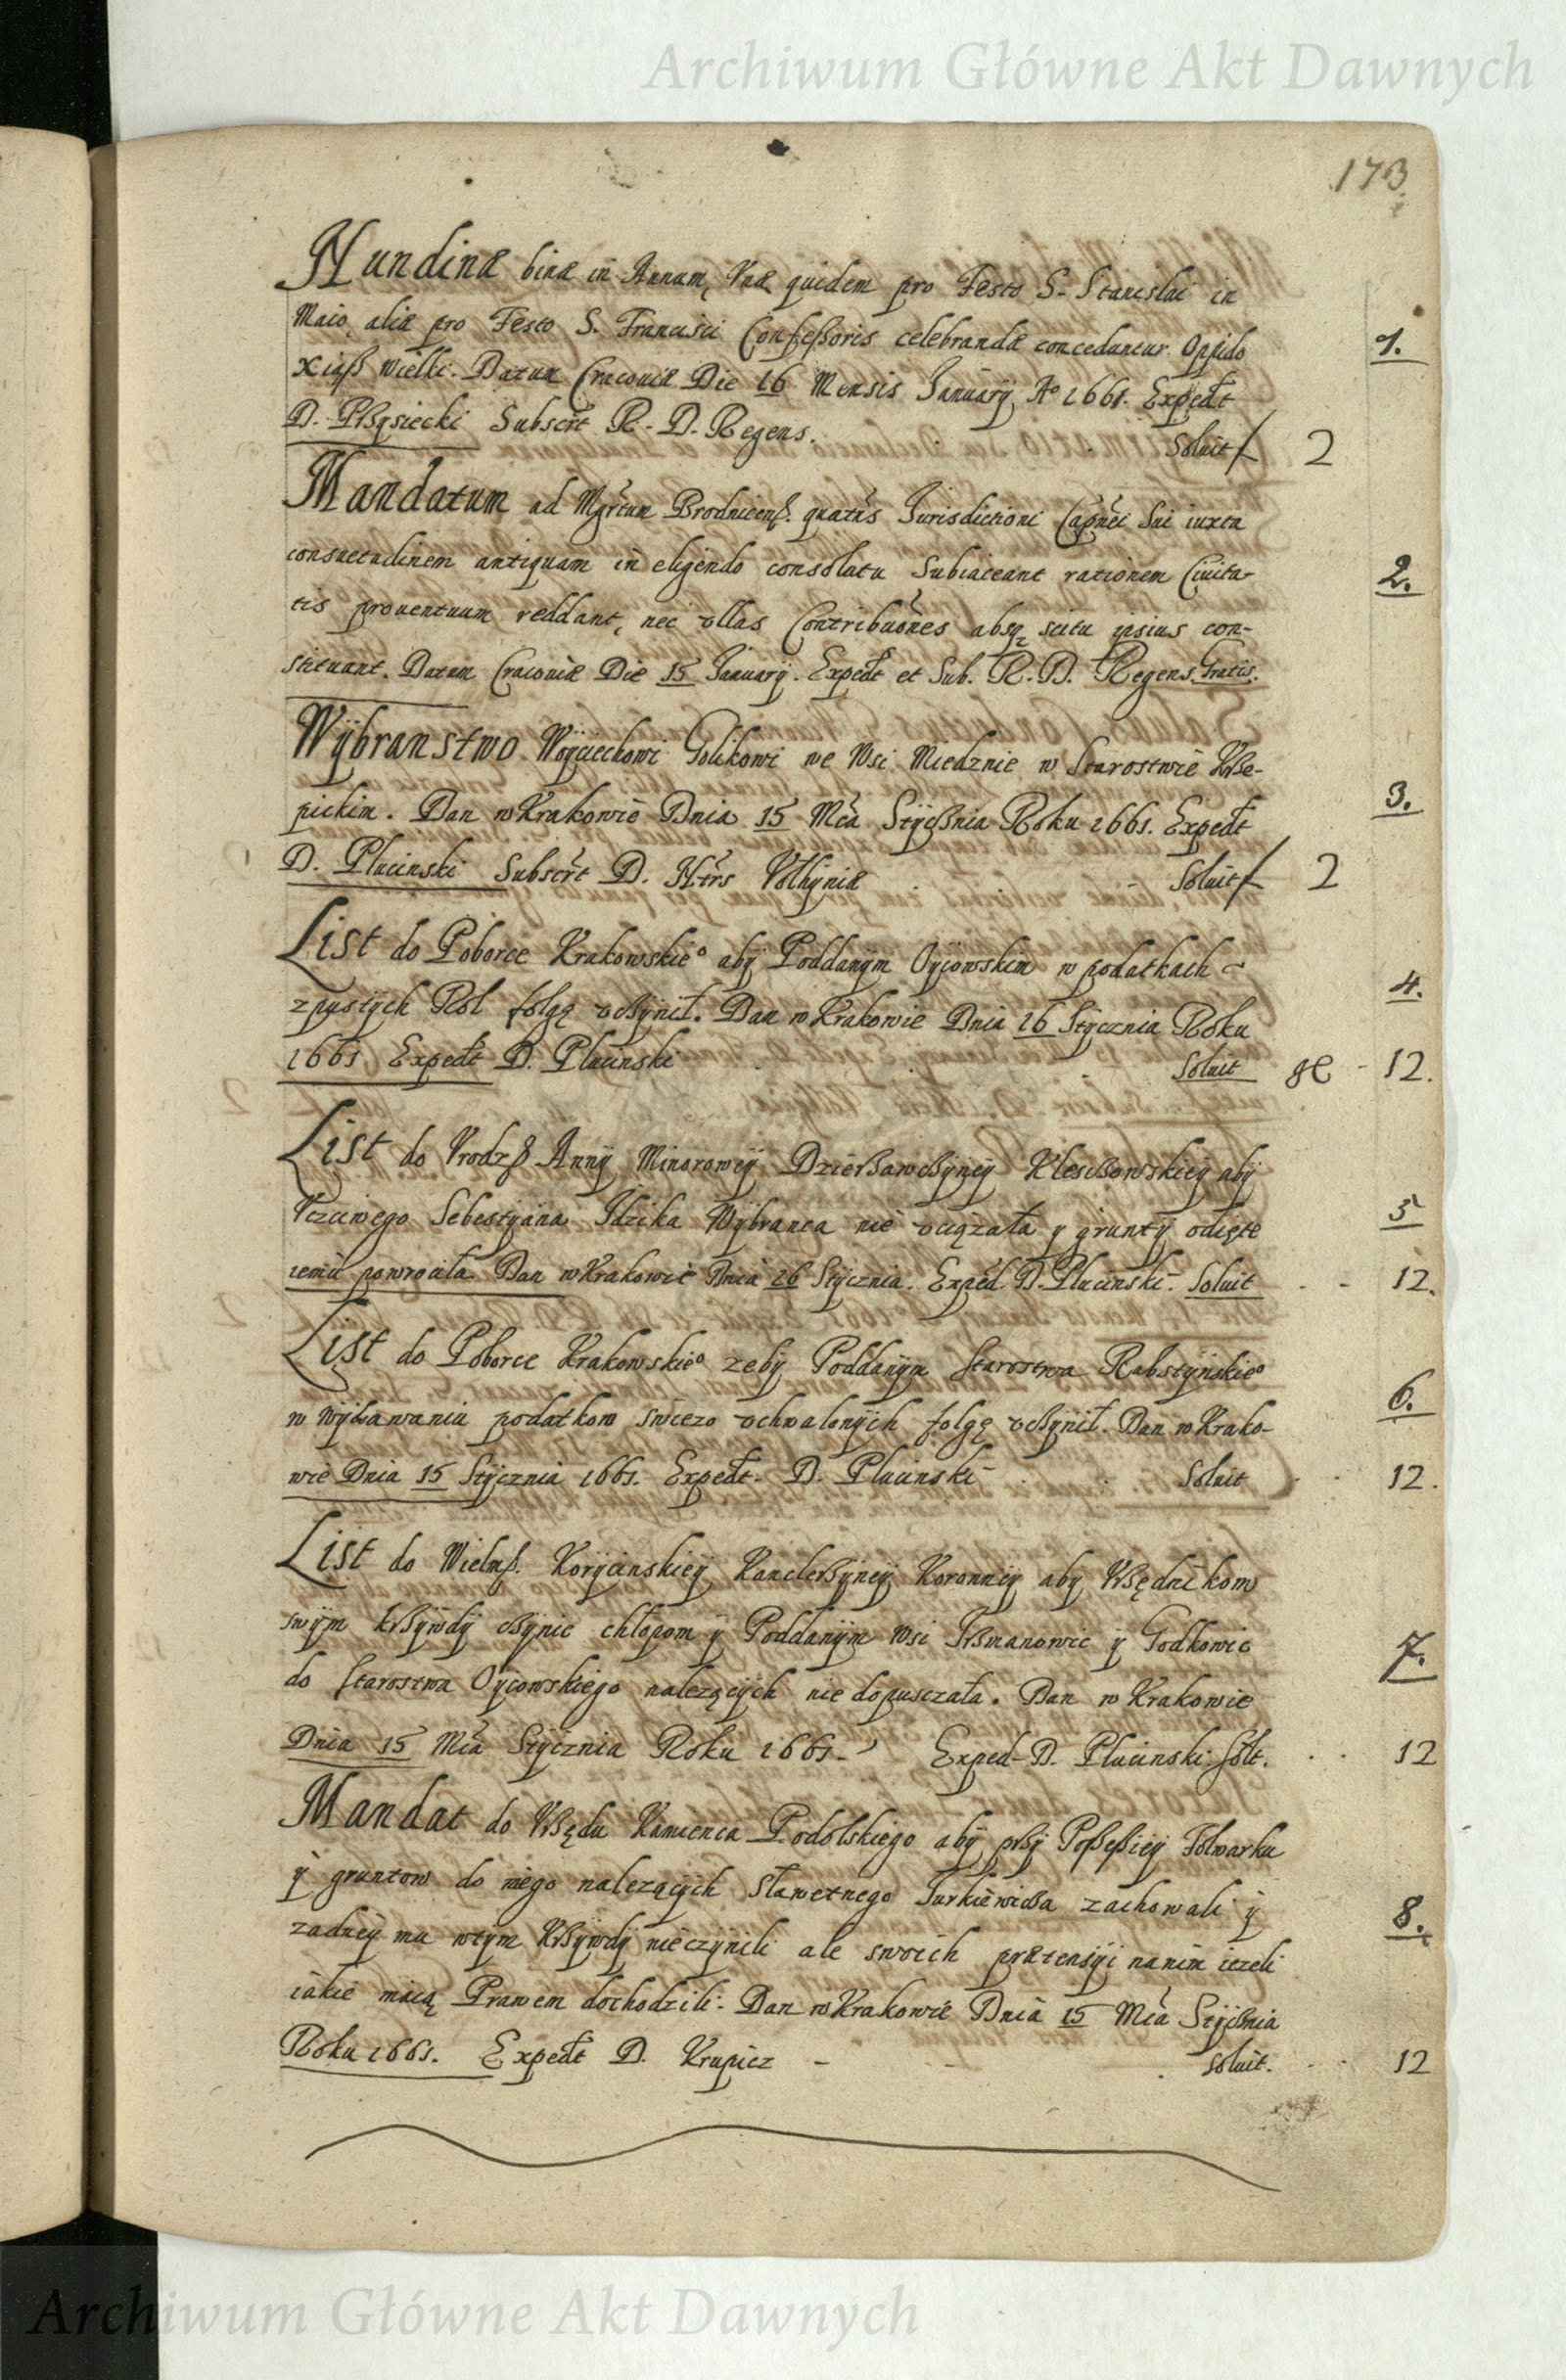 Archiwum Główne Akt Dawnych
173
Nundinæ binæ in Annum, Vnæ quidem pro Festo S. Stanislai in
Maio, aliæ pro Festo S. Francisci Confeßoris celebrandæ conceduntur Oppido
Xiąß Wielki. Datum Cracoviæ Die 16 Mensis Januarij Ao 1661. Expedt
1.
D. Pßąsiecki Subscrt R. D. Regens. Soluit f 2
Mandatum ad Mgrtum Brodnicenß. quatus Jurisdictioni Capnei Sui iuxta
consuetudinem antiquam in eligendo consolatu Subiaceant rationem Ciuita-
2.
tis prouentuum reddant, nec vllas Contribuones absq scitu ipsius con-
stituant. Datum Cracoviæ Die 15 Januarij. Expedt et Sub. R. D. Regens. Gratis.
Wÿbranstwo Woÿciechowi Golikowi we Wsi Miedznie w Starostwie Kße-
pickim. Dan w Krakowie Dnia 15 Mca Stÿcßnia Roku 1661. Expedt
3.
D. Plucinski Subscrt D. Ntrs Volhÿniæ Soluit f 2
List do Poborce Krakowskieo abÿ Poddanÿm Oÿcowskim w podatkach
z pustÿch Rol folgę vcßÿnił. Dan w Krakowie Dnia 16 Stÿcznia Roku
4.
1661 Expedt D. Plucinski Soluit gr 12.
List do Vrodzß Annÿ Minorowéÿ Dzierßawcßÿnéÿ Klescßowskiéÿ abÿ
Vczciwego Sebestÿana Idzika Wÿbranca nie vciązała ÿ gruntÿ odięte
5
iemu powrociła. Dan w Krakowie Dnia 16 Stÿcznia. Exped. D. Plucinski. Soluit 12.
List do Poborce Krakowskieo zebÿ Poddanÿm Starostwa Rabstÿnskieo
w wÿbawaniu podatkow swiezo vchwalonÿch folgę vcßÿnił. Dan w Krako-
6.
wie Dnia 15 Stÿcznia 1661. Expedt. D. Plucinski Soluit 12.
List do Wielmß. Korÿcinskiéÿ Kanclerßÿnéÿ Koronnéÿ abÿ Vßędnikom
swÿm krßÿwdÿ cßÿnic chłopom ÿ Poddanÿm Wsi Jrßmanowic ÿ Godkowic
do Starostwa Oÿcowskiego nalezącÿch nie dopusczała. Dan w Krakowie
7.
Dnia 15 Mca Stÿcznia Roku 1661. Exped. D. Plucinski. Solt. 12
Mandat do Vßędu Kamienca Podolskiego abÿ pßÿ Poßeßiéÿ Folwarku
ÿ gruntow do niego nalezącÿch Sławetnego Jurkiewicßa zachowali ÿ
zadnéÿ mu wtÿm Kßÿwdÿ nieczÿnili ale swoich prætensÿi nanim iezeli
8.
iakie maią Prawem dochodzili. Dan w Krakowie Dnia 15 Mca Stÿcßnia
Roku 1661. Expedt D. Krupicz Soluit. 12
Archiwum Główne Akt Dawnych